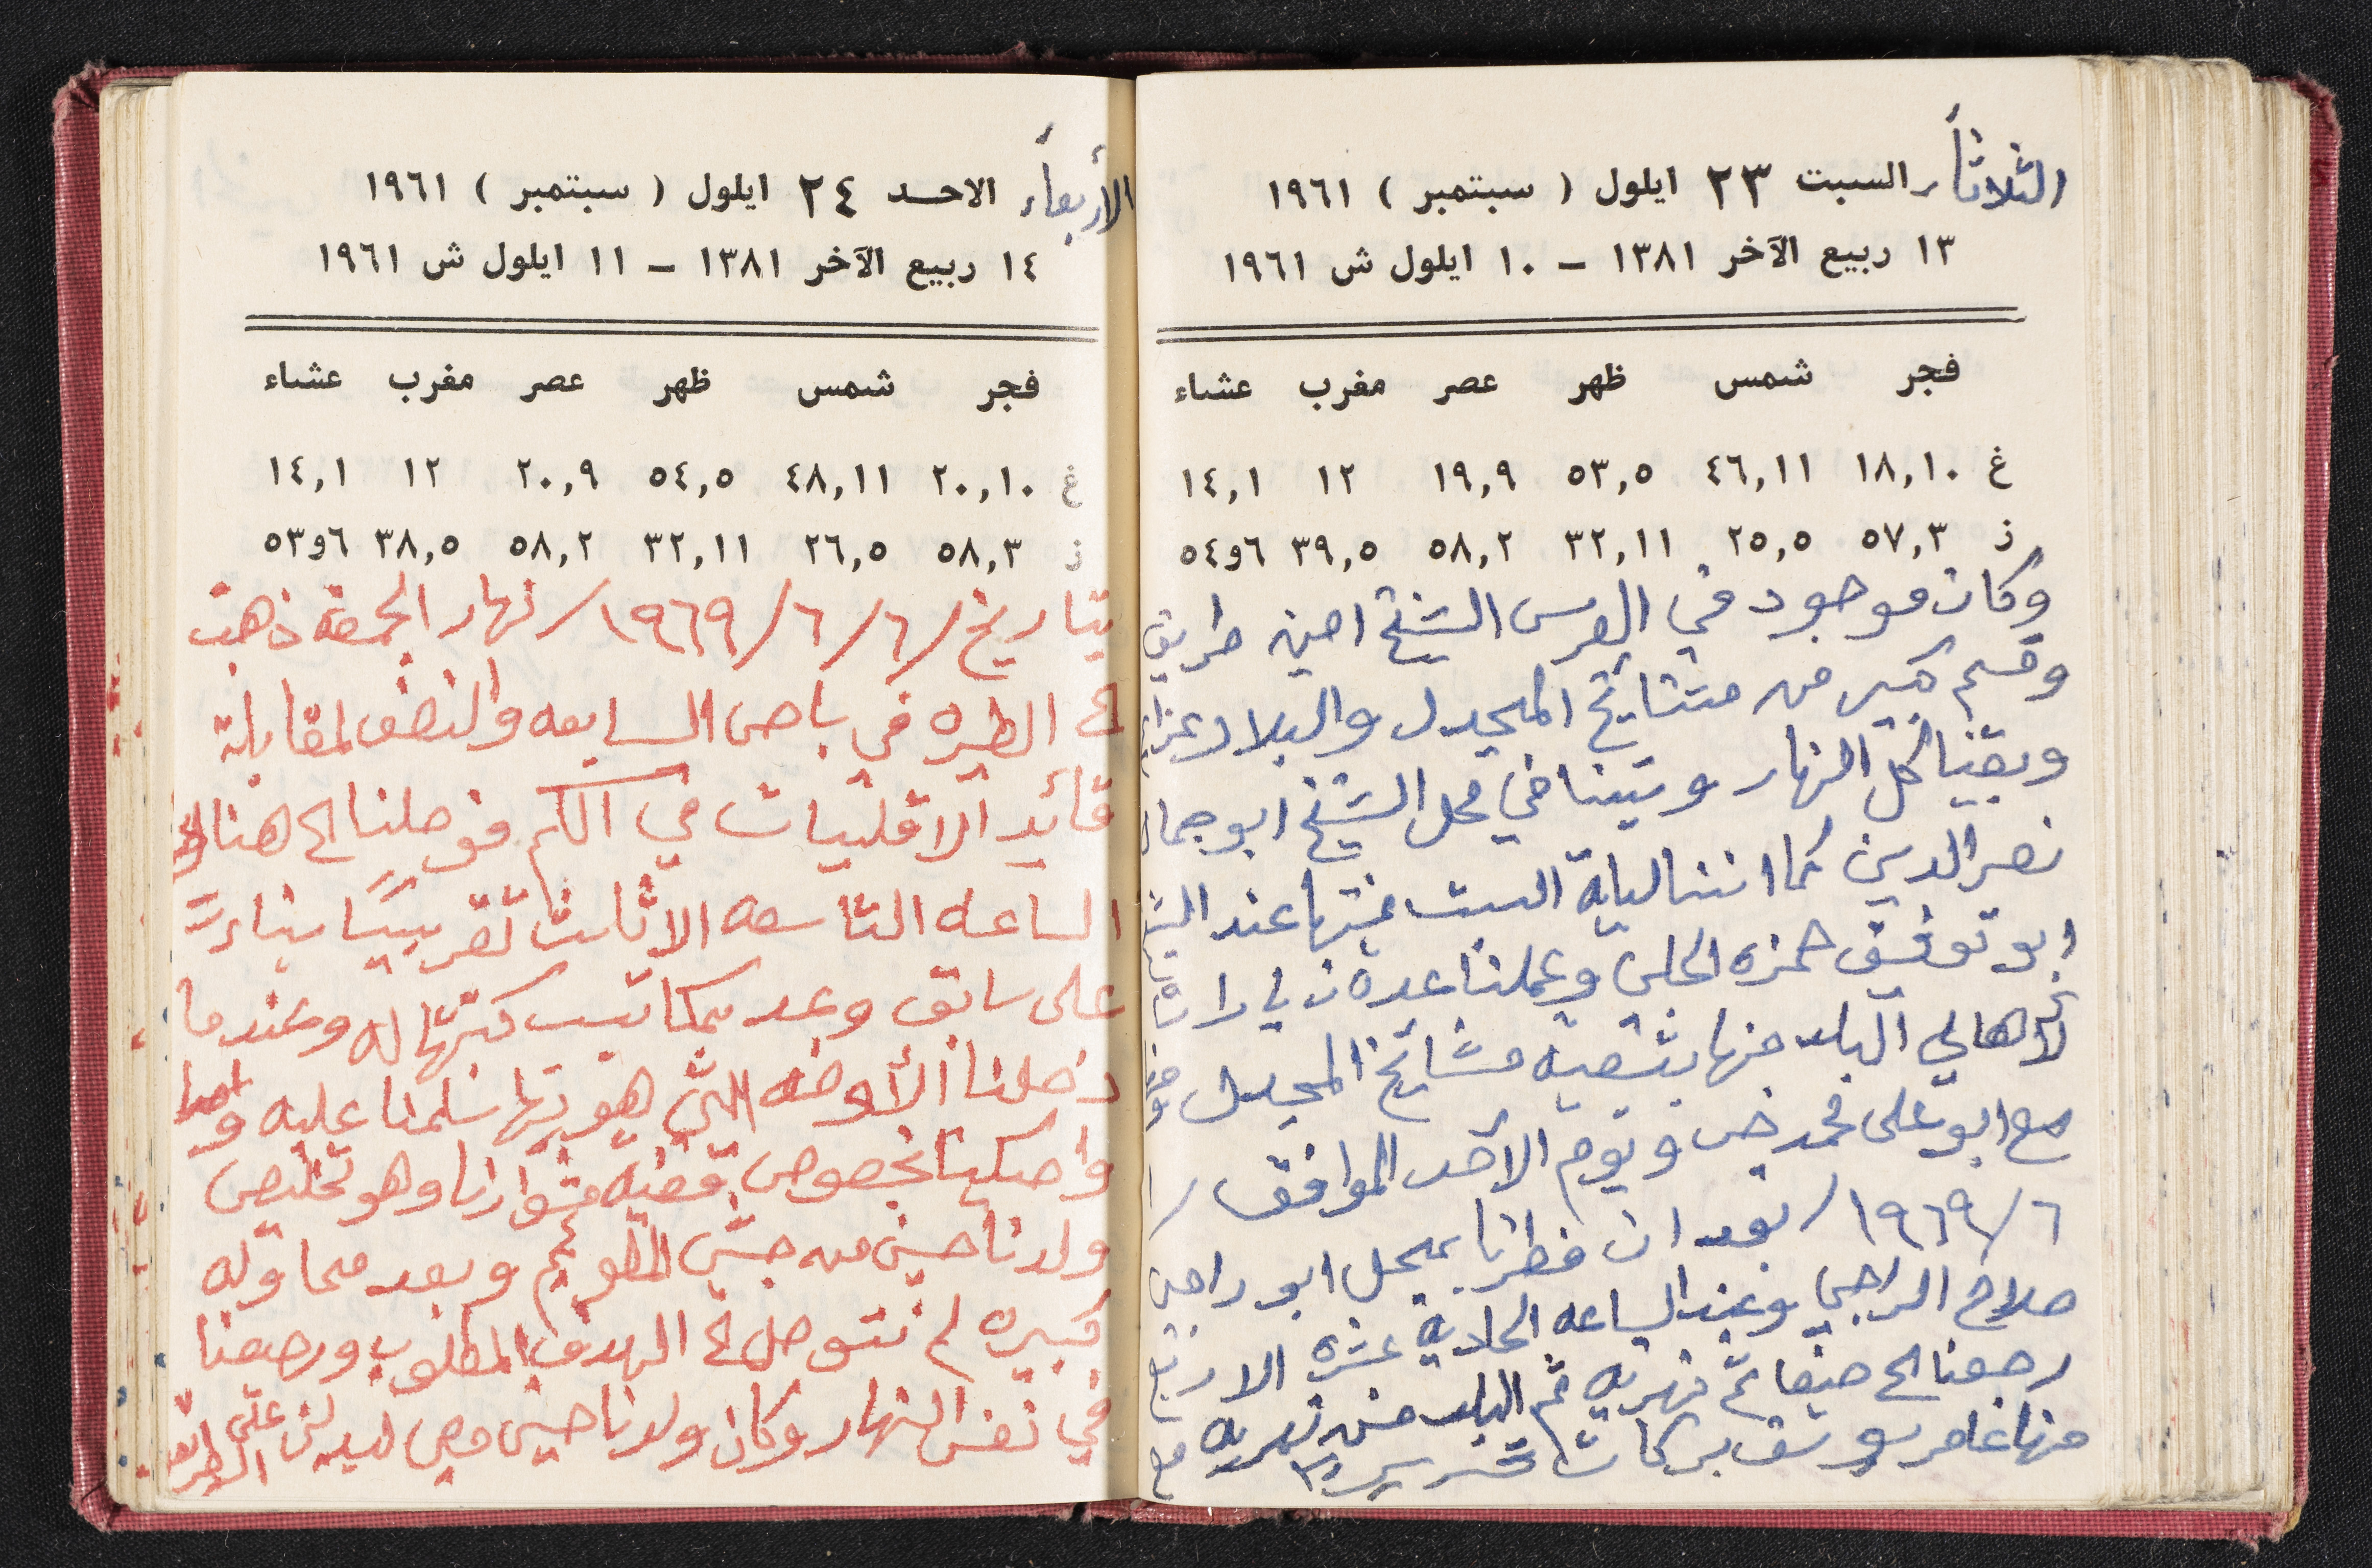 الثلاثاء السبت ٢٣ ايلول ( سبتمبر ) ١٩٦١
١٣ ربيع الآخر ١٣٨١ – ١٠ ايلول ش ١٩٦١
فجر شمس ظهر عصر مغرب عشاء
غ ١٨,١٠ ٤٦,١١ ٥٣,٥ ١٩,٩ ١٢ ١٤,١
ز ٥٧,٣ ٢٥,٥ ٣٢,١١ ٥٨,٢ ٣٩,٥ ٦و٥٤
وكان موجود في العرس الشيخ امين طريق
وقسم كبير من مشايخ المجدل والبلاد
وبقينا كل النهار وتينا في محل الشيخ ابو جمال
نصرالدين كما اننا ليلة السبت عند
ابو توفيق حمزه الحلبي وعملنا عدة زيارات
لاهالي البلد منها مشايخ المجدل
مع ابو على محمد ويوم الأحد الموافق /
٦/١٩٦٩/ بعد ان فطرنا بمحل ابو راجي
صلاح الراجي وعند الساعه الحادية عشره الا ربع
رجعنا الى ثم البلد من
منها عامر بركات مع
الأربعاء الاحد ٢٤ ايلول ( سبتمبر ) ١٩٦١
١٤ ربيع الآخر ١٣٨١ – ١١ ايلول ش ١٩٦١
فجر شمس ظهر عصر مغرب عشاء
غ ٢٠,١٠ ٤٨,١١ ٥٤,٥ ٢٠,٩ ١٢ ١٤,١
ز ٥٨,٣ ٢٦,٥ ٣٢,١١ ٥٨,٢ ٣٨,٥ ٦و٥٣
بتاريخ /٦/٦/١٩٦٩/ نهار الجمعة ذهبت
الى الطيره في باص السابعه والنصف لمقابلة
قائد الاقليات في الكم فوصلنا الى هناك
الساعه التاسعه الا ثلث تقريبًا بناء
على سابق وعد بمكاتيب كتبتها له وعندما
دخلنا الأوضه التي هو بها سلمنا عليه
واحكينا بخصوص قضية وهو تخليص
ولدنا حسين من جيش وبعد محاوله
كبيره لم نتوصل الى الهدف المطلوب ورجعنا
في نفس النهار وكان ولدنا حسين معي على